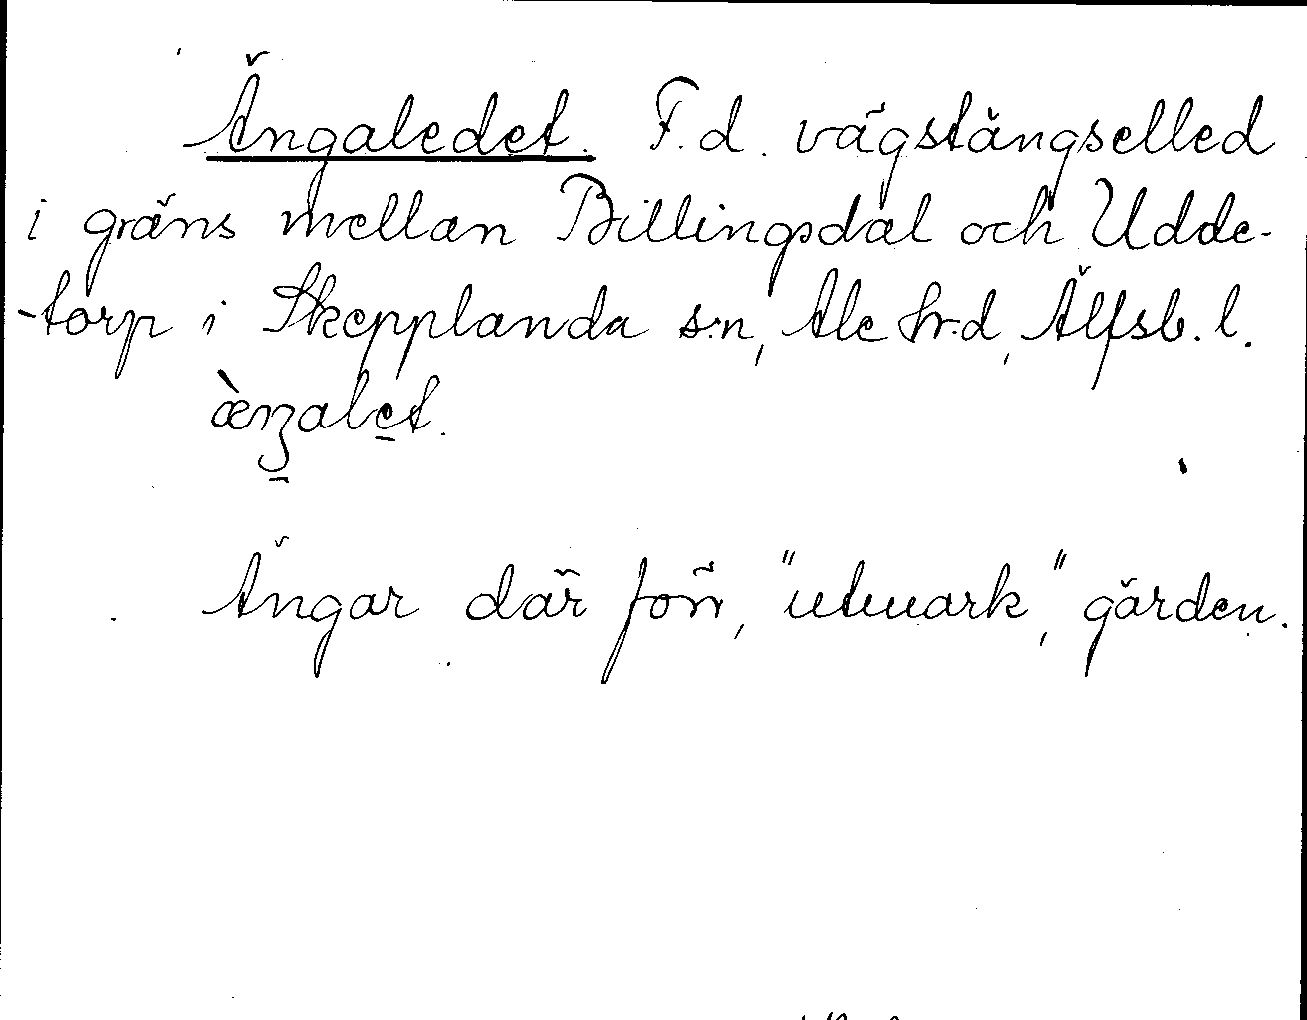 Ängaledet. F.d. vägstängselled
i gräns mellan Billingsdal och Udde-
-torp i Skepplanda s:n, Ale hr.d, Älfsb. l.
Ängar där förr, "utmark", gärden.